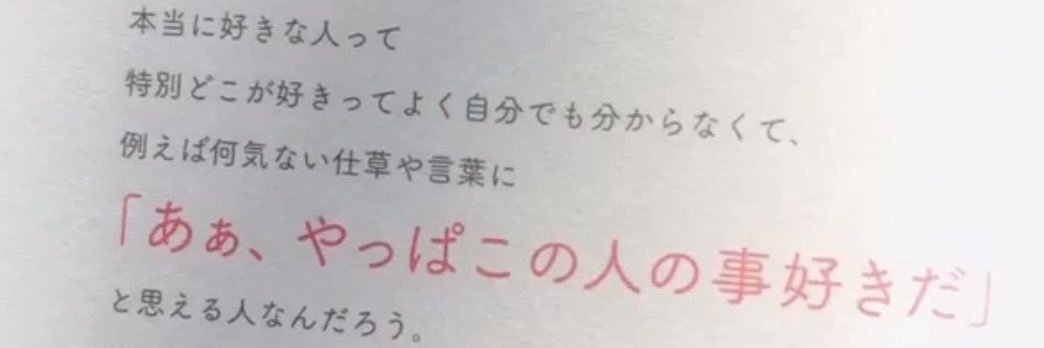 本当に好きな人って
特別どこが好きってよく自分でも分からなくて、
例えば何気ない仕草や言葉に
「あぁ、やっぱこの人の事好きだ」
と思える人なんだろう。